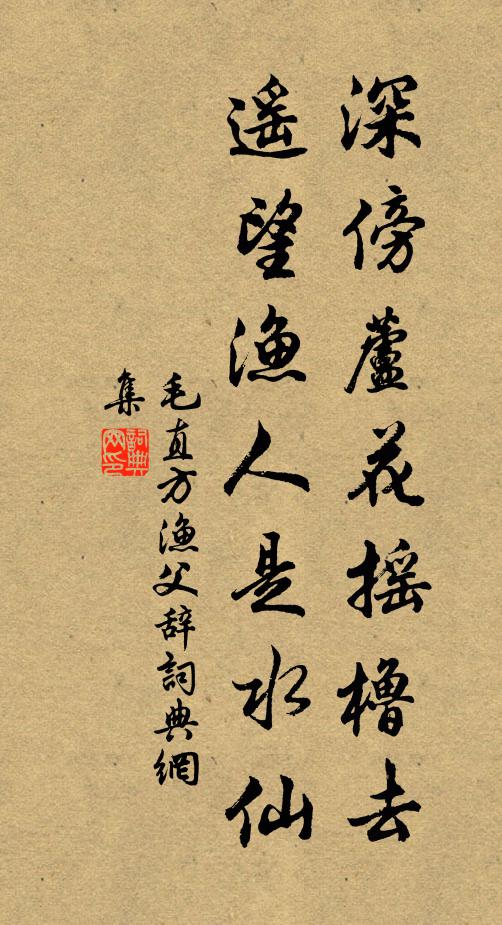 深傍蘆花摇櫓去
遥望漁人是水仙
毛直方漁父辞詞典網
集
詞典网印